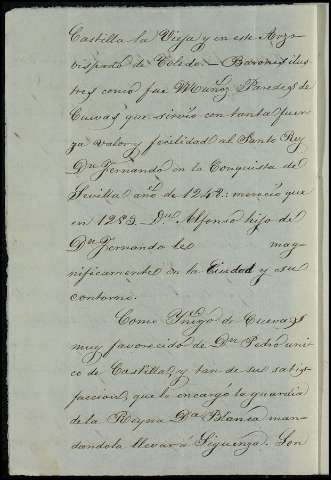 Castilla la Vieja y en este Arzo-
vispado de Toledo.— Barones ilus
tres como fue Muñoz Paredes de
Cuevas que sirvió con tanta fuer
za valor y felicidad al Santo Rey
Dn Fernando en la Conquista de
Sevilla año de 1248: mereció que
en 1253. Dn Alfonso hijo de
Dn Fernando le mag-
nificamente en la Ciudad y su
contorno.
Como Yñigo de Cuevas
muy favorecido de Dn Pedro uni-
co de Castilla, y tan de su satis-
faccion, que le encargó la guardia
de la Reyna Da Blanca man-
dandola llevar á Siguenza. Son